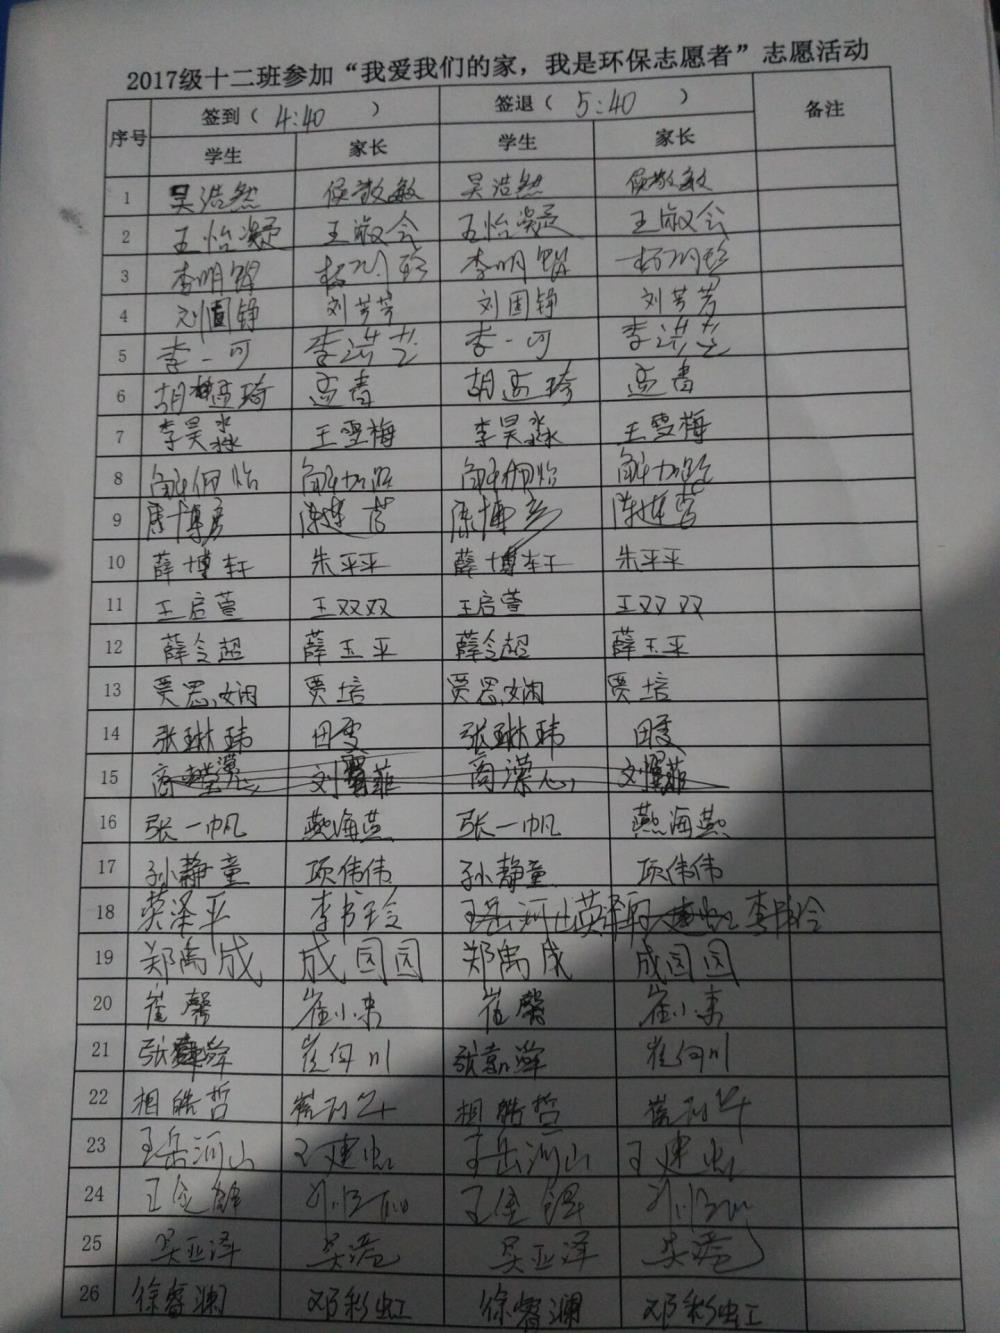 2017级十二班参加“我爱我们的家，我是环保志愿者”志愿活动
序号 签到（ 4:40 ） 签退（ 5:40 ） 备注
学生 家长 学生 家长
1 吴浩然 侯敬敏 吴浩然 侯敬敏
2 王怡凝 王淑会 王怡凝 王淑会
3 李明 李明
4 刘国铮 刘芳芳 刘国铮 刘芳芳
5 李一可 李洪芝 李一可 李洪芝
6 胡孟琦 孟青 胡孟琦 孟青
7 李昊淼 王雪梅 李昊淼 王雪梅
8 解佩怡 解佩怡
9 康博彦 陈莲营 康博彦 陈莲营
10 薛博轩 朱平平 薛博轩 朱平平
11 王启萱 王双双 王启萱 王双双
12 薛令超 薛玉平 薛令超 薛玉平
13 贾思娴 贾培 贾思娴 贾培
14 张琳玮 田雯 张琳玮 田雯
15 商 刘 菲 商濛心 刘 菲
16 张一帆 燕海燕 张一帆 燕海燕
17 孙静童 项伟伟 孙静童 项伟伟
18 英泽平 李书玲 王岳河山 英泽平 李书玲
19 郑禹成 成园园 郑禹成 成园园
20 崔馨 崔小东 崔馨 崔小东
21 张 舜 崔何川 张 舜 崔何川
22 相皓哲 相皓哲
23 王岳河山 王建虹 王岳河山 王建虹
24 王金铎 王金铎
25 吴亚泽 吴浩 吴亚泽 吴浩
26 徐睿澜 邓彩虹 徐睿澜 邓彩虹